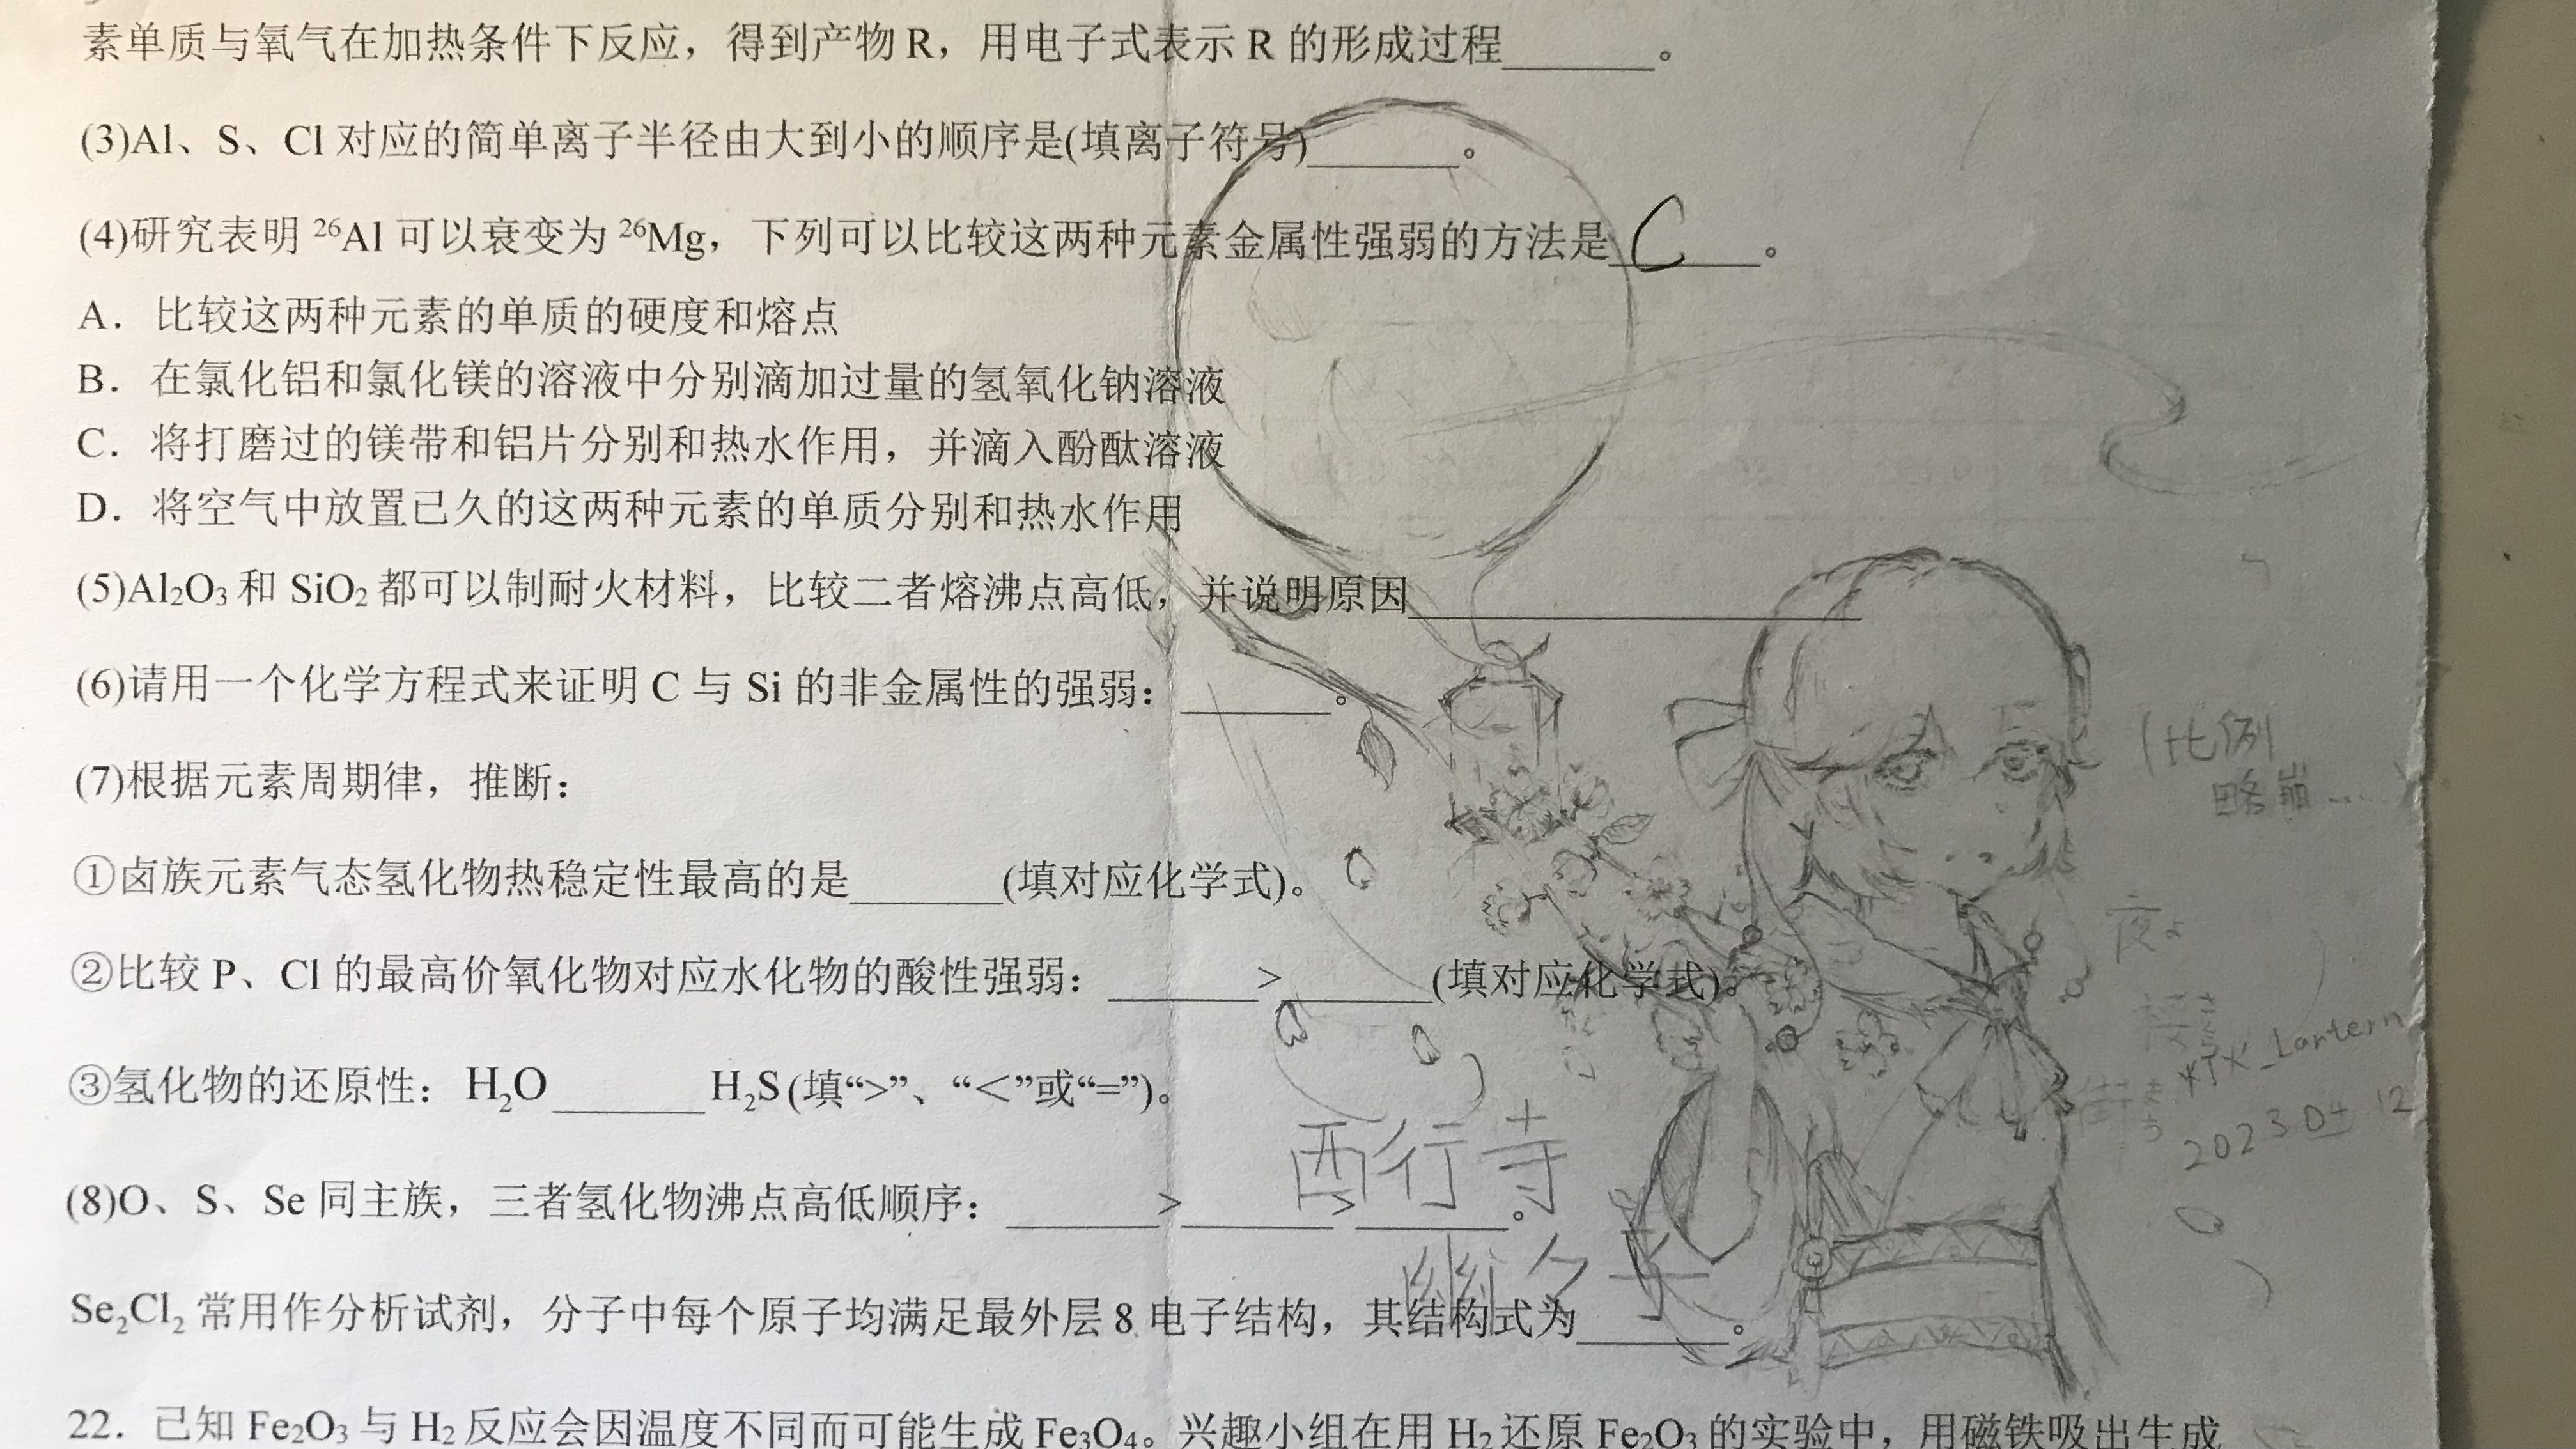 素单质与氧气在加热条件下反应，得到产物R，用电子式表示R的形成过程______。
(3)Al、S、Cl对应的简单离子半径由大到小的顺序是(填离子符号)______。
(4)研究表明²⁶Al可以衰变为²⁶Mg，下列可以比较这两种元素金属性强弱的方法是 C 。
A．比较这两种元素的单质的硬度和熔点
B．在氯化铝和氯化镁的溶液中分别滴加过量的氢氧化钠溶液
C．将打磨过的镁带和铝片分别和热水作用，并滴入酚酞溶液
D．将空气中放置已久的这两种元素的单质分别和热水作用
(5)Al₂O₃和SiO₂都可以制耐火材料，比较二者熔沸点高低，并说明原因__________________
(6)请用一个化学方程式来证明C与Si的非金属性的强弱：______。
(比例
略崩……)
(7)根据元素周期律，推断：
①卤族元素气态氢化物热稳定性最高的是______(填对应化学式)。
②比较P、Cl的最高价氧化物对应水化物的酸性强弱：______>______(填对应化学式)。
灯火_Lantern
③氢化物的还原性：H₂O______H₂S(填“>”、“<”或“=”)。
2023 04 12
西行寺
(8)O、S、Se同主族，三者氢化物沸点高低顺序：______>______>______。
幽々子
Se₂Cl₂常用作分析试剂，分子中每个原子均满足最外层8电子结构，其结构式为______。
22．已知Fe₂O₃与H₂反应会因温度不同而可能生成Fe₃O₄。兴趣小组在用H₂还原Fe₂O₃的实验中，用磁铁吸出生成